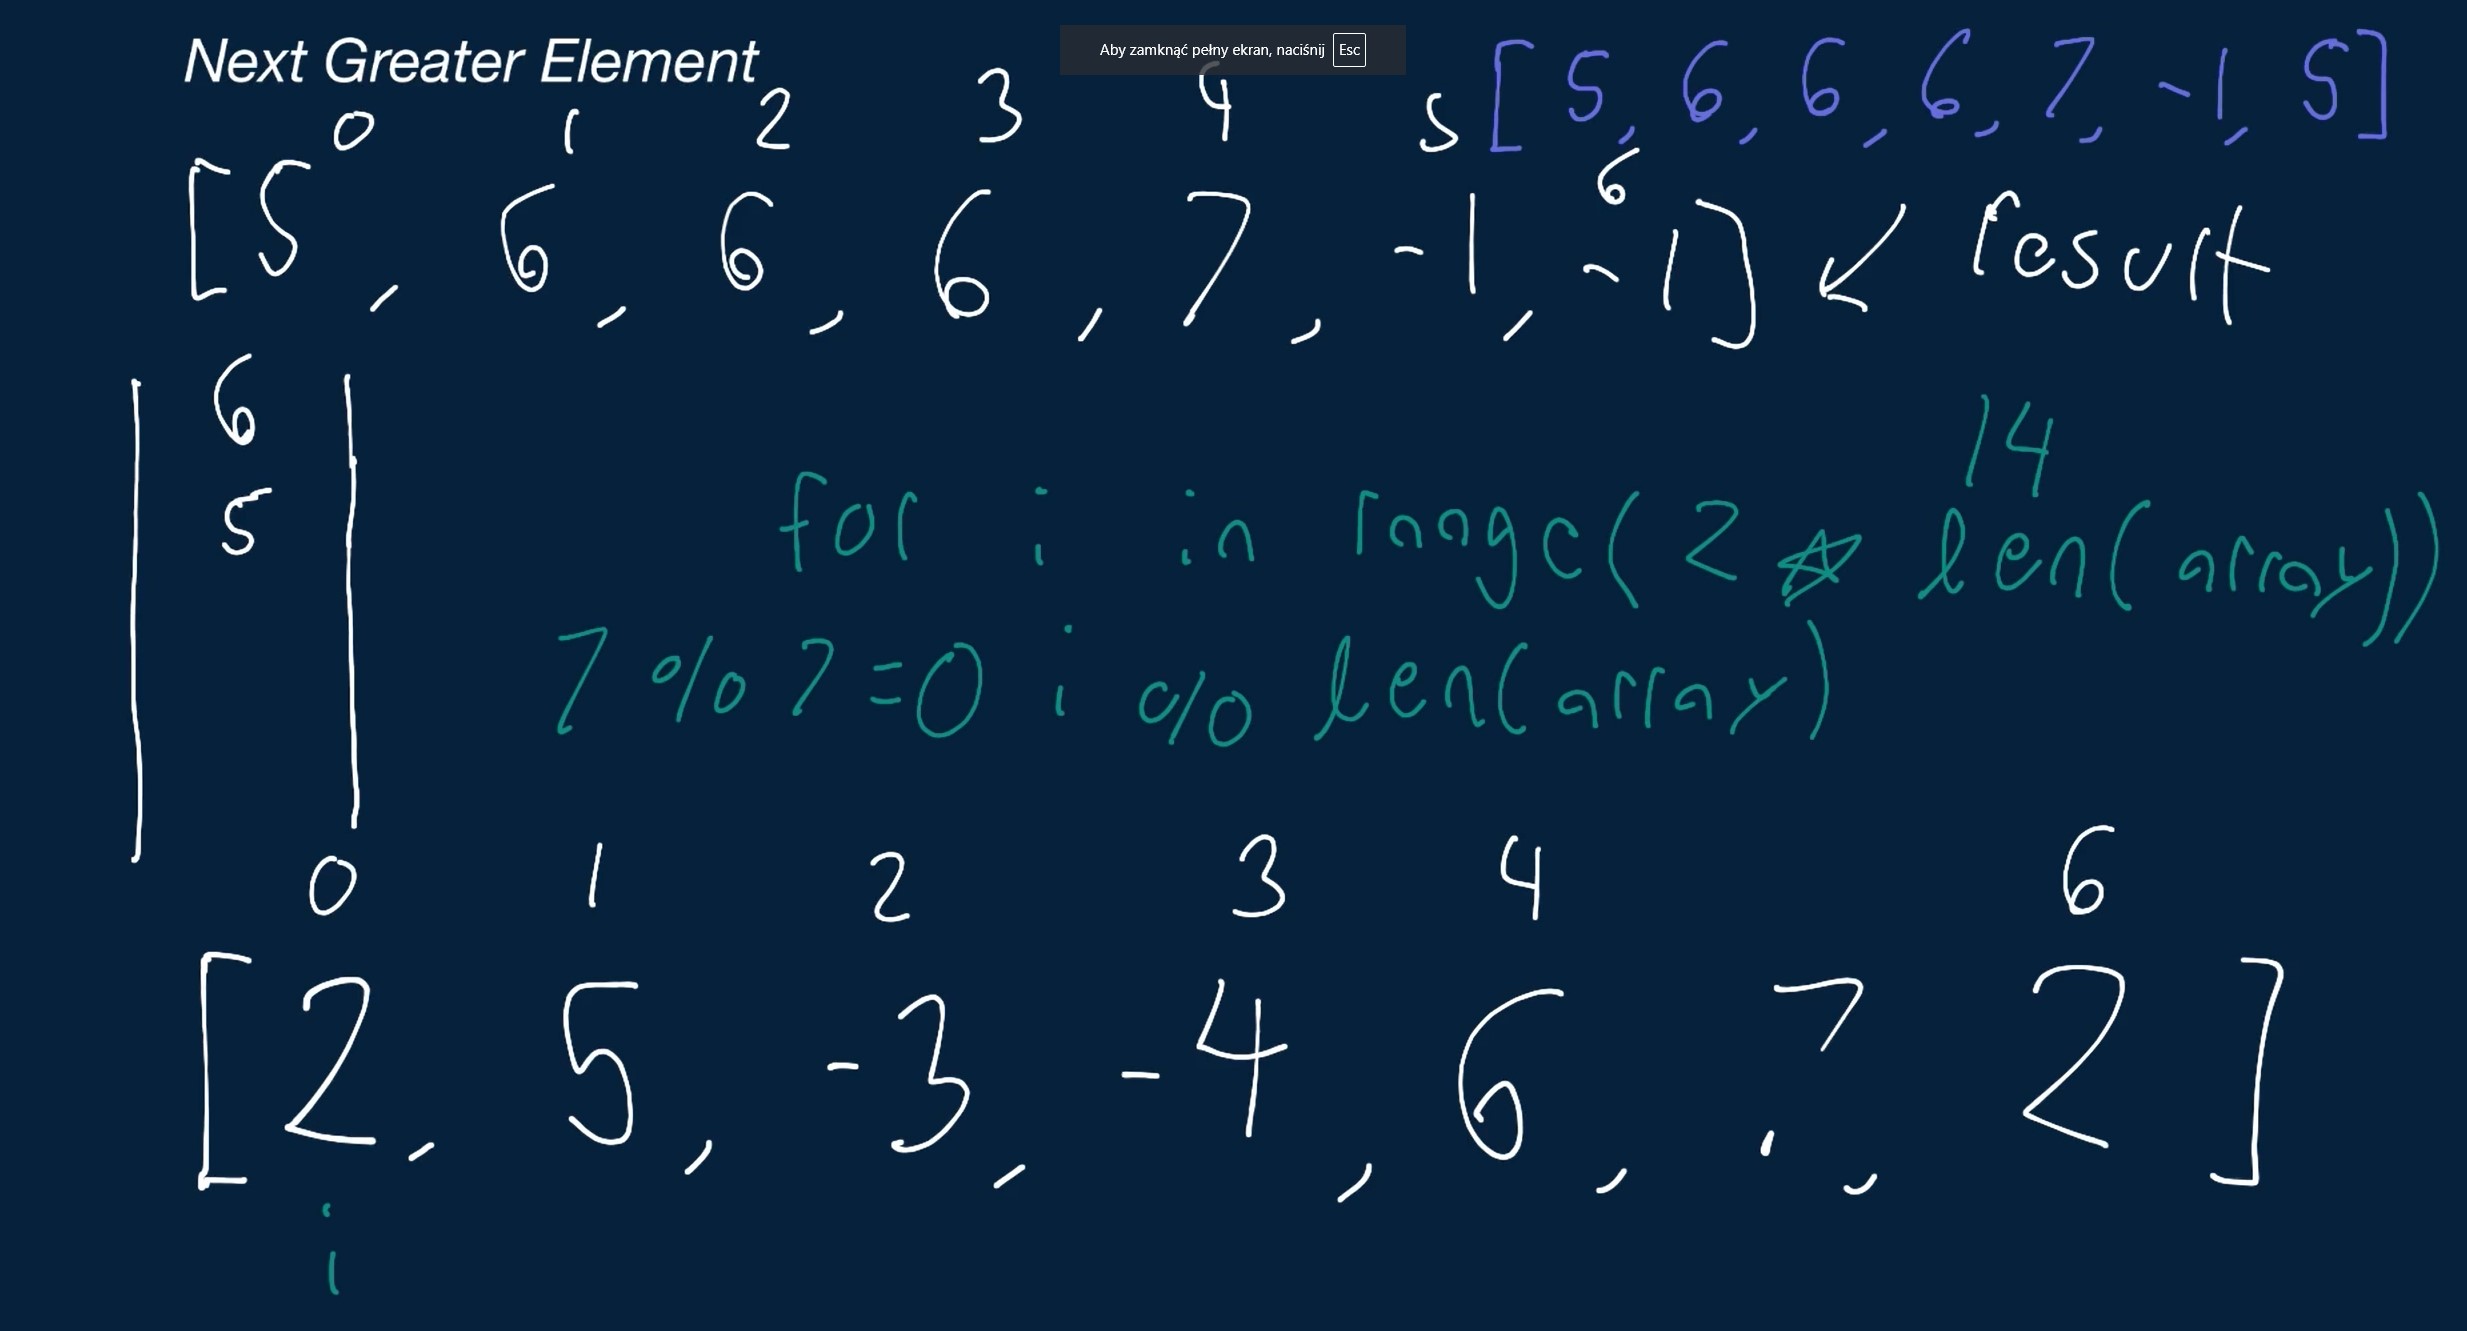 Next Greater Element
Aby zamknąć pełny ekran, naciśnij Esc
[5, 6, 6, 6, 7, -1, 5]
0 1 2 3 4 5 6
[5, 6, 6, 6, 7, -1, -1] ↙ result
6
5
14
for i in range(2 * len(array))
7 % 7 = 0 i % len(array)
0 1 2 3 4 6
[2, 5, -3, -4, 6, 7, 2]
i